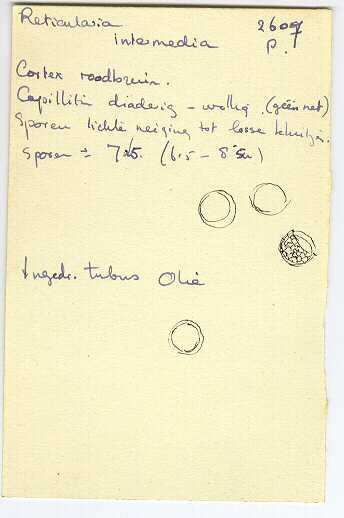 Reticularia 2609
intermedia P.
Cortex roodbruin.
Capillitia diaderig - wollig. (géén net)
Sporen lichte neiging tot losse
sporen ± 7.5. (6.5 - 8.5u)
Ingedr. tubus Olie